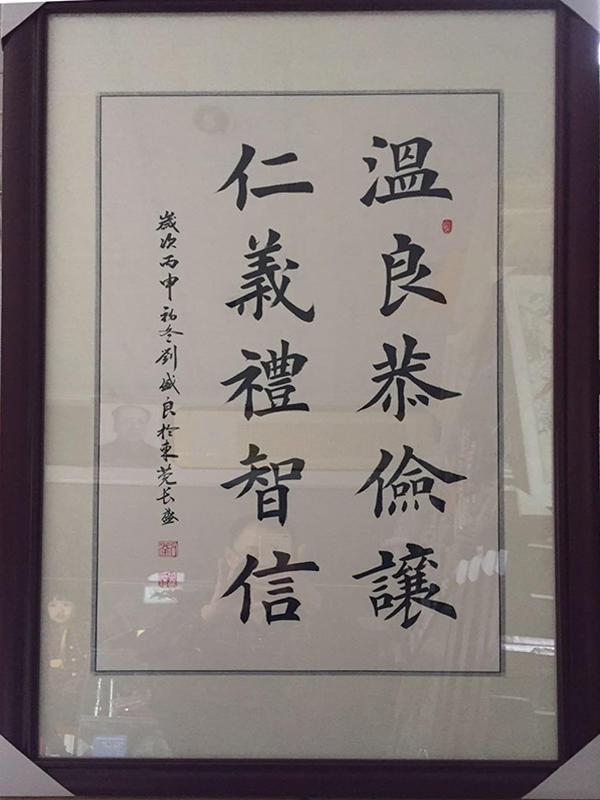 溫良恭儉讓
仁義禮智信
歲次丙申初冬劉盛良於東莞长盛